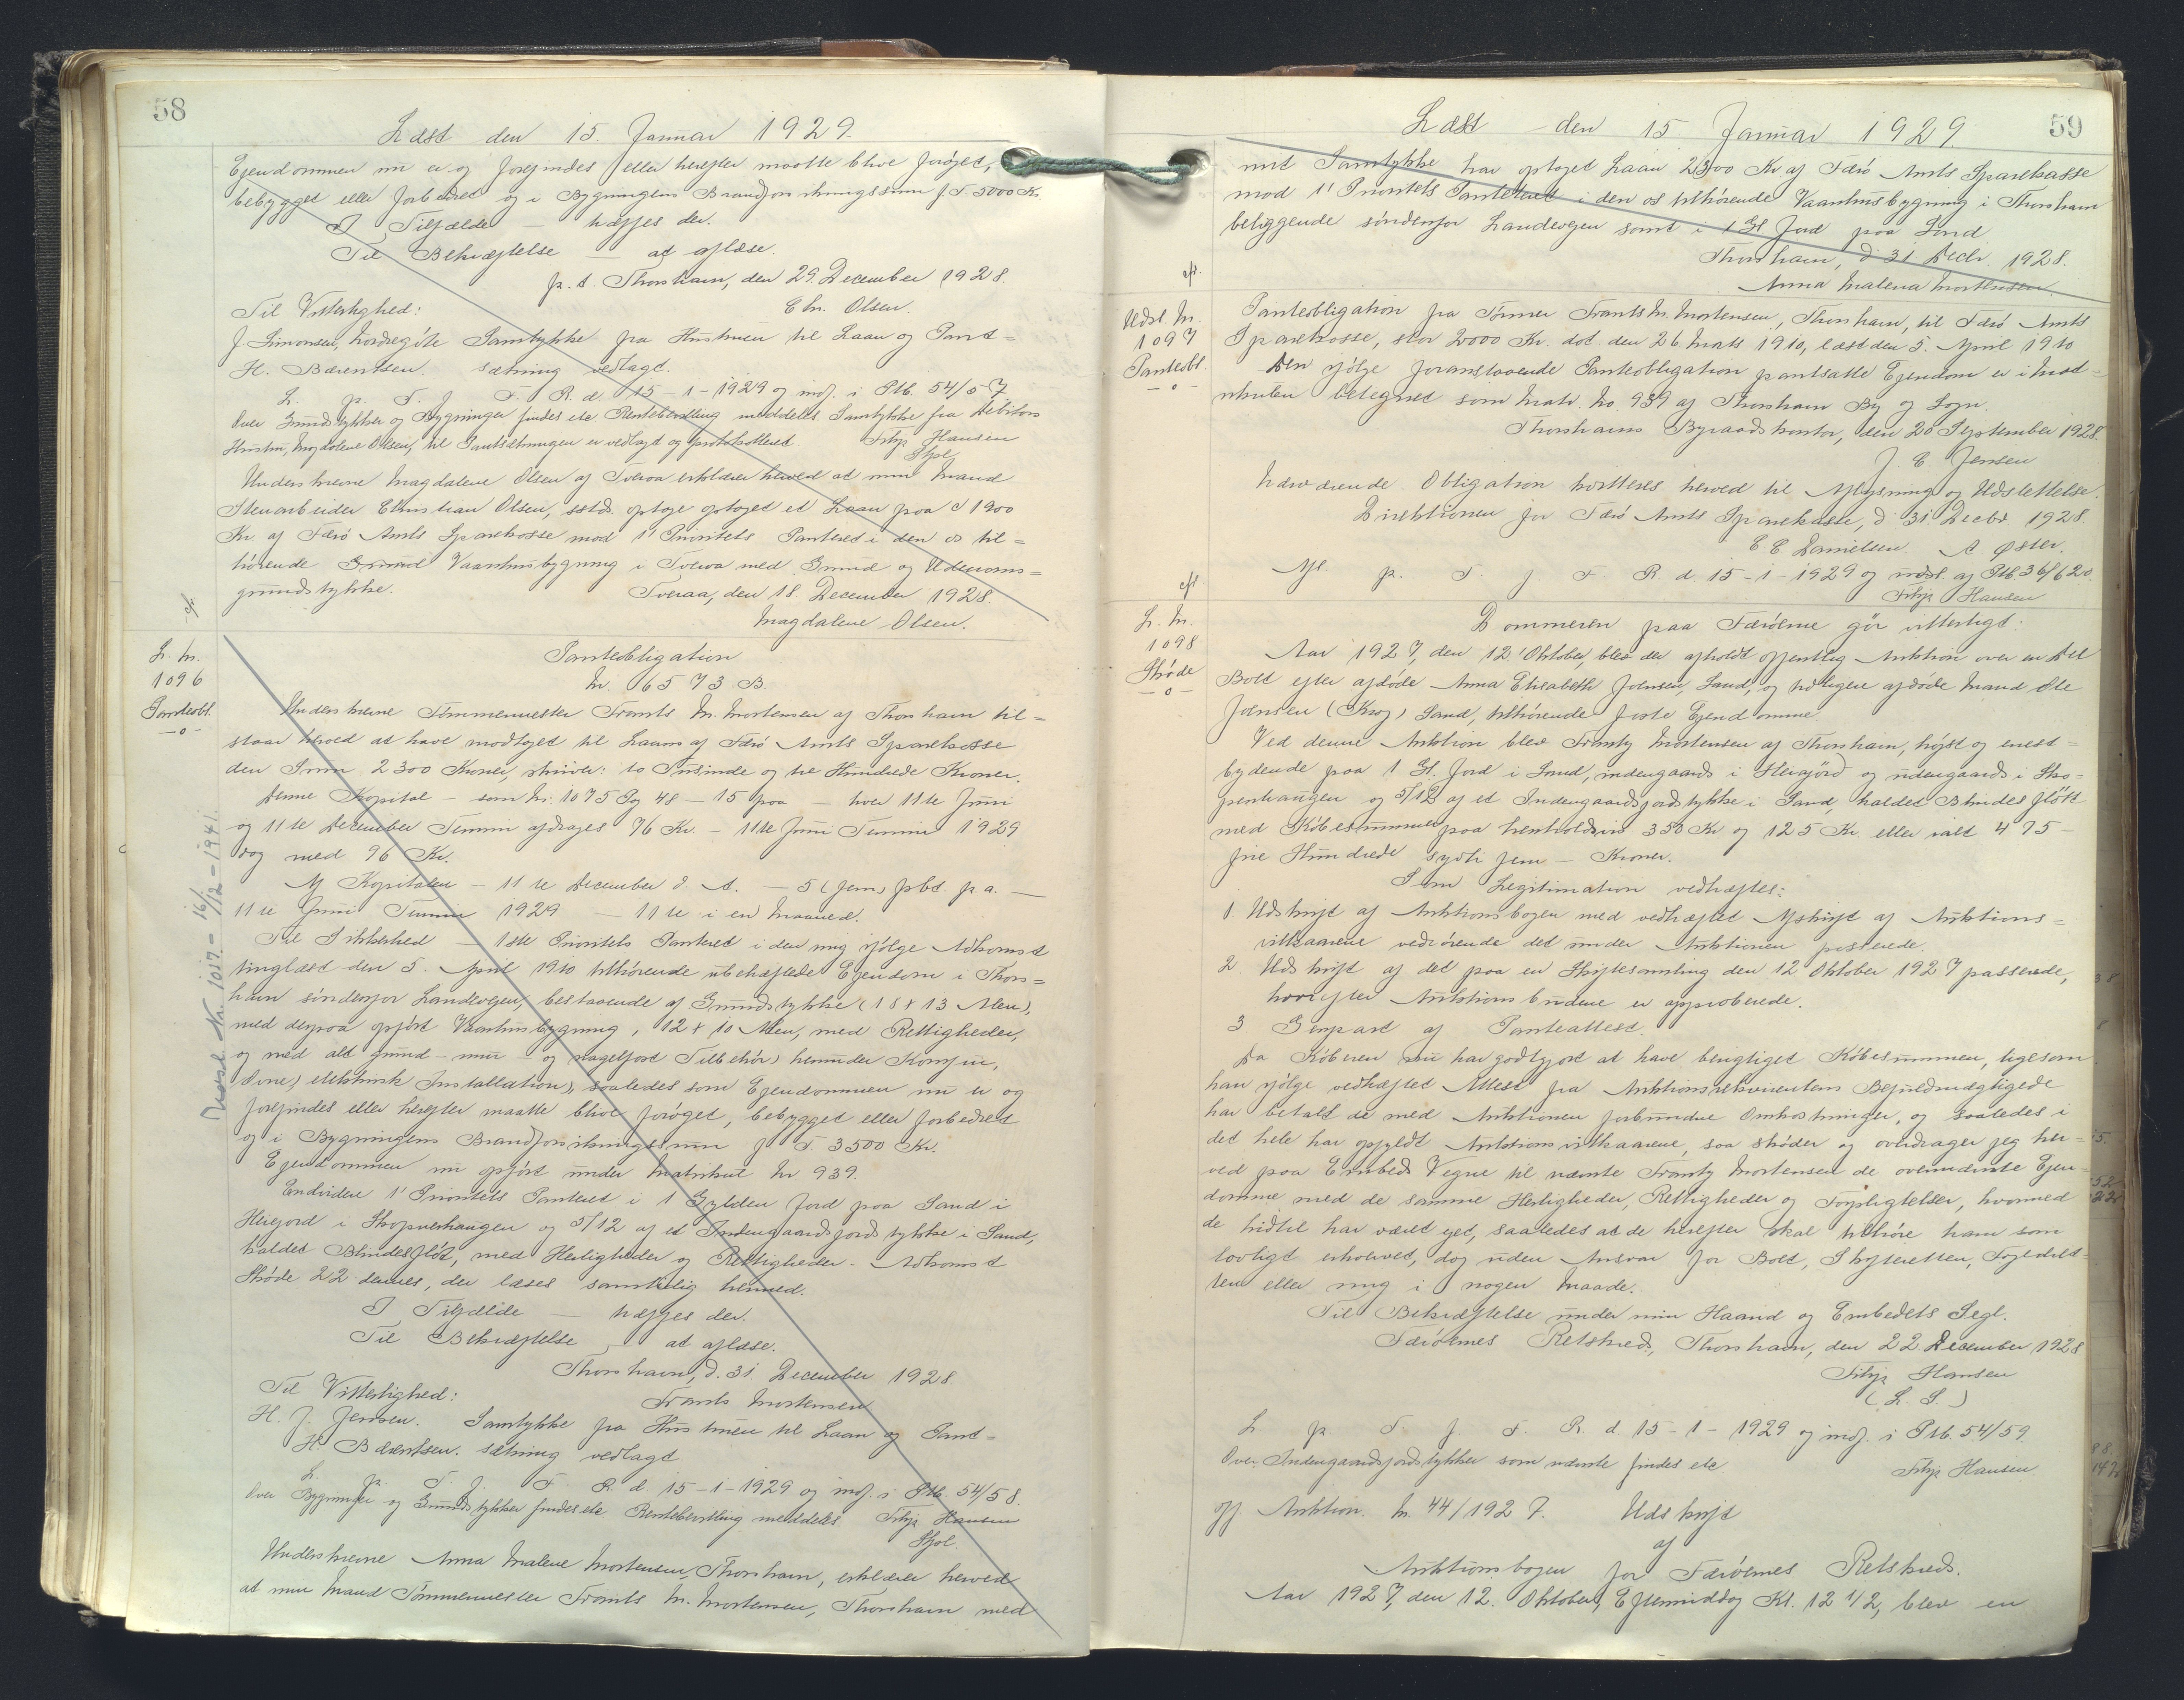 58
Læst den 15. Januar 1929.
Ejendommen nu er og forefindes eller herefter maatte blive forøget,
bebygget eller forbedret og i Bygningens Brandforsikringssum f. T. 5000 Kr.
I Tilfælde — hæftes der.
Til Bekræftelse — at aflæse.
p. t. Thorshavn, den 29. December 1928.
Chr. Olsen.
Til Vitterlighed:
J. Simonsen, Nordregøte Samtykke fra Hustruen til Laan og Pant=
H. Bærentsen. sætning vedlagt.
L. p. T. f. F. R. d. 15-1-1929 og indf. i Ptb. 54/57
Over Grundstykker og Bygninger findes ete Rentebevilling meddelts. Samtykke fra Debitors
Hustru, Magdalene Olsen, til Pantsætningen er vedlagt og protokolleret. Filip Hansen
Undershrevne Magdalene Olsen af Tveraa erklærer herved at min Mand
Stenarbeider Christian Olsen, sstds. optage optaget et Laan paa 1900
Kr. af Færø Amts Sparekasse mod 1' Prioritets Panteret i den os til=
hørende Grund Vaanhusbygning i Tveraa med Grund og Udenoms=
grundstykke. Tveraa, den 18. December 1928.
Magdalene Olsen.
L. Nr.
1096
Panteobl.
—o—
Panteobligation
Nr. 6573 B.
Underskrevne Tømmermester Frants M. Mortensen af Thorshavn til=
staar herved at have modtaget til Laans af Færø Amts Sparekasse
den Sum 2300 Kroner, skriver: to Tusinde og tre Hundrede Kroner.
Denne Kapital — som Nr. 1075 Pag 48 — 15 paa — hver 11te Juni
og 11te December Termin afdrages 96 Kr. — 11te Juni Termin 1929
dog med 96 Kr.
Af Kapitalen — 11te December d. A. — 5 (fem) pCt. p. a. —
11te Juni Termin 1929 — 11te i en Maaned.
Til Sikkerhed — 1ste Prioritets Panteret i den mig ifølge Adkomst
tinglæst den 5. April 1910 tilhørende ubehæftede Ejendom i Thors=
havn søndenfor Landevejen, bestaaende af Grundstykke (18 x 13 Alen),
med derpaa opført Vaanhusbygning, 12 x 10 Alen, med Rettigheder,
og med alt grund- mur- og nagelfast Tilbehør, herunder Komfur,
Ovne, elektrisk Installation, saaledes som Ejendommen nu er og
forefindes eller herefter maatte blive forøget, bebygget eller forbedret
og i Bygningens Brandforsikringssum f. T. 3500 Kr.
Ejendommen nu opført under Matrikul Nr 939.
Endvidere 1' Prioritets Panteret i 1 Gylden Jord paa Sand i
Heiejord i Skopunhaugen og 5/12 af et Indengaardsjordstykke i Sand,
kaldet Blindesfløt, med Herligheder og Rettigheder. Adkomst
Skøde 22 dennes, der læses samtidig hermed.
I Tilfælde — hæftes der.
Til Bekræftelse, at aflæse.
Thorshavn, d. 31. December 1928.
Til Vitterlighed: Frants Mortensen
H. J. Jensen. Samtykke fra Hustruen til Laan og Pant=
H. Bærentsen. sætning vedlagt
L. p. T. f. F. R. d. 15-1-1929 og indf. i Ptb. 54/58.
Over Bygninger og Grundstykker findes ete Rentebevilling meddelts. Filip Hansen
Underskrevne Anna Malene Mortensen, Thorshavn, erklærer herved
at min Mand Tømmermester Frants M. Mortensen, Thorshavn med
Nr. 1017. — 16/12 — 1941.
59
Læst den 15. Januar 1929
mit Samtykke har optaget Laan 2300 Kr af Færø Amts Sparekasse
mod 1' Prioritets Panteret i den os tilhørende Vaanhusbygning i Thorshavn
beliggende søndenfor Landevejen samt i 1 Gl Jord paa Sand
Thorshavn, d 31 Decbr. 1928.
Anna Malena Mortensen.
Udsl. Nr.
1097
Panteobl.
—o—
Panteobligation fra Tømrer Frants M. Mortensen, Thorshavn, til Færø Amts
Sparekasse, stor 2000 Kr. dat. den 26. Marts 1910, læst den 5. April 1910
Den ifølge foranstaaende Panteobligation pantsatte Ejendom er i Mat=
rikulen betegnet som Matr. No. 939 af Thorshavn By og Sogn.
Thorshavns Byraadskontor, den 20 September 1928.
J. C. Jensen
Nærværende Obligation kvitteres herved til Aflysning og Udslettelse.
Direktionen for Færø Amts Sparekasse, d 31. Decbr 1928.
C C Danielsen. A Øster.
Afl. p. T. f F R d. 15-1-1929 og udsl. af Ptb. 36/620.
Filip Hansen
L. Nr.
1098
Skøde
—o—
Dommeren paa Færøerne gør vitterligt:
Aar 1927, den 12' Oktober, blev der afholdt offentlig Auktion over en del
Boet efter afdøde Anna Elisabeth Joensen, Sand, og tidligere afdøde Mand Ole
Joensen (Krog) Sand, tilhørende faste Ejendomme.
Ved denne Auktion blev Frants Mortensen af Thorshavn, højst og enest=
bydende paa 1 Gl. Jord i Sand, indengaards i Heiejord og udengaards i Sko=
penhaugen og 5/12 af et Indengaardsjordstykke i Sand, kaldet Blindesfløtt
med Købesummer paa henholdsvis 350 Kr og 125 Kr. eller ialt 475 —
fire Hundrede sytti fem — Kroner.
Som Legitimation vedhæftes:
1. Udskrift af Auktionsbogen med vedhæftet Afskrift af Auktions=
vilkaarene vedrørende det under Auktionen passerede.
2. Udskrift af det paa en Skiftesamling den 12 Oktober 1927 passerede,
hvorefter Auktionsbudene er approberede.
3 Genpart af Panteattest.
Da Køberen nu har godtgjort at have berigtiget Købesummen, ligesom
han ifølge vedhæftet Attest fra Auktionsrekvirentens Befuldmægtigede
har betalt de med Auktionen forbundne Omkostninger, og saaledes i
det hele har opfyldt Auktionsvilkaarene, saa skøder og overdrager jeg her=
ved paa Embeds Vegne til nævnte Frants Mortensen de ovennævnte Ejen=
domme med de samme Herligheder, Rettigheder og Forpligtelser, hvormed
de hidtil har været ejet, saaledes at de herefter skal tilhøre ham som
lovligt erhvervet, dog uden Ansvar for Boet, Skifteretten, Fogedret=
ten eller mig i nogen Maade.
Til Bekræftelse under min Haand og Embedets Segl.
Færøernes Retskreds, Thorshavn, den 22 December 1928
Filip Hansen
(L. S.)
L p. T. f. F. R. d. 15-1-1929 og indf. i Ptb. 54/59.
Over Indengaardsjordstykker som nævnte findes ete Filip Hansen.
Off. Auktion. Nr. 44/1927. Udskrift
af
Auktionsbogen for Færøernes Retskreds.
Aar 1927, den 12. Oktober, Eftermiddag Kl. 12 1/2, blev en